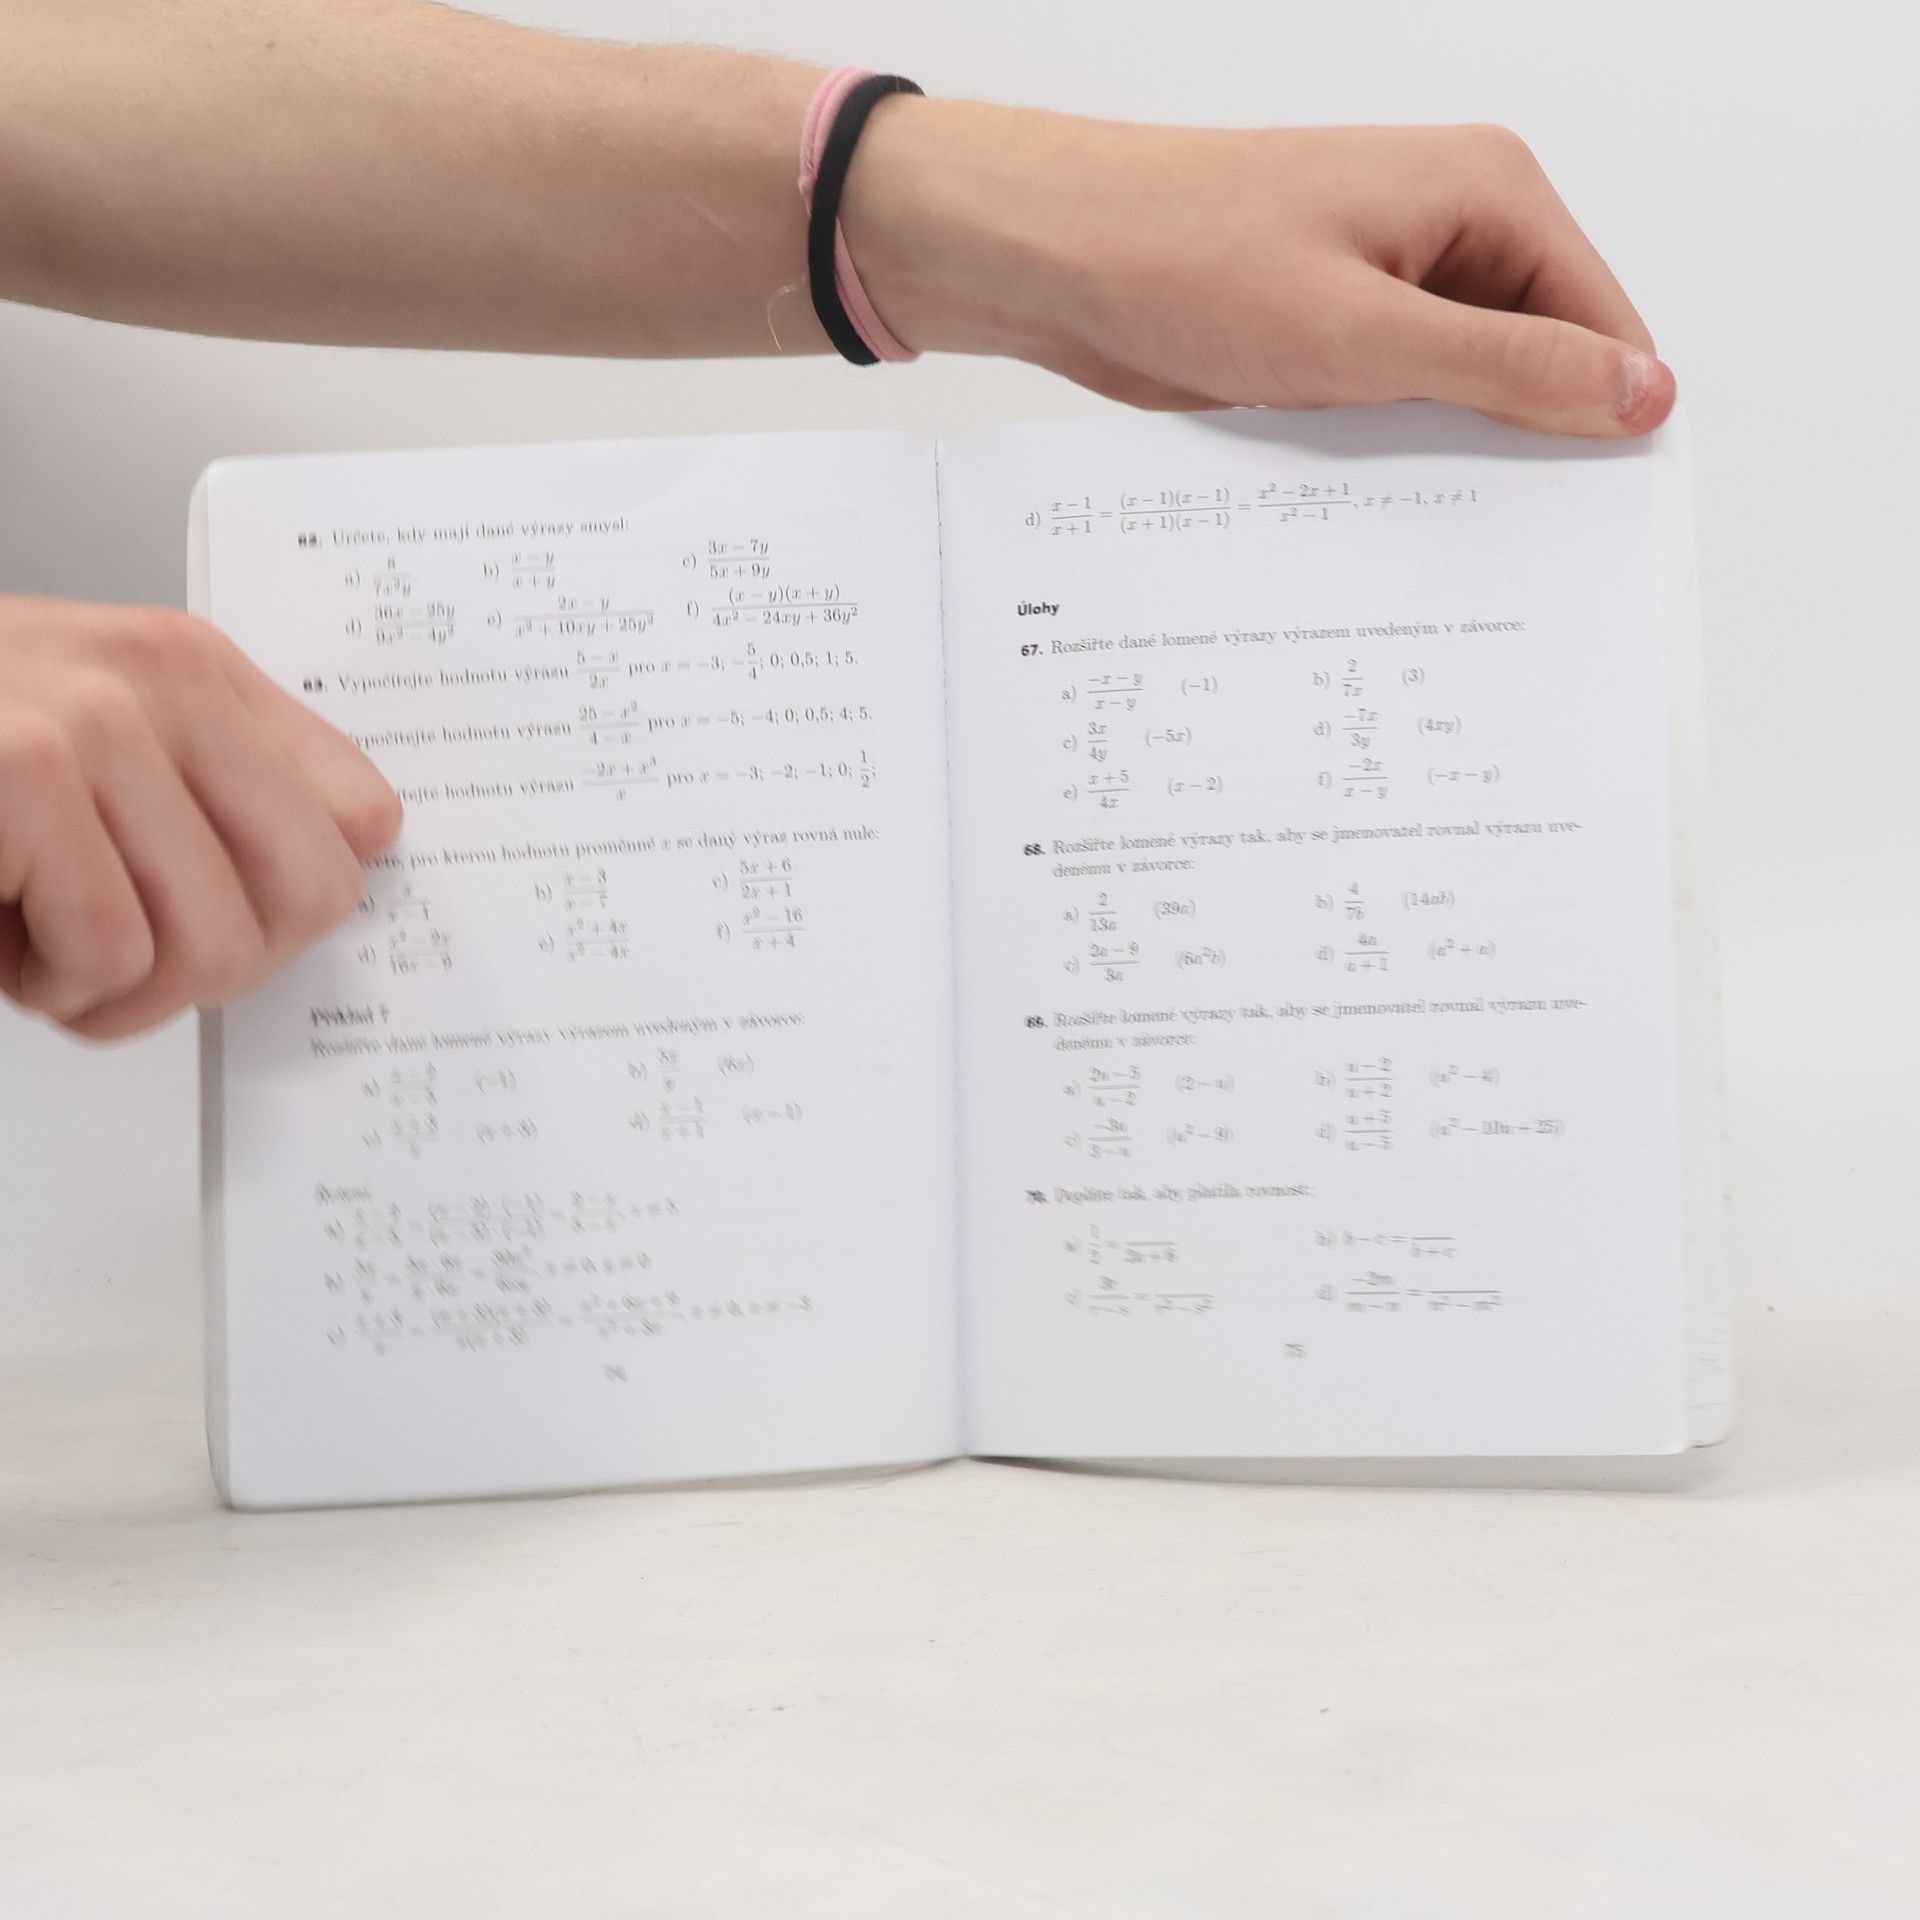 62. Určete, kdy mají dané výrazy smysl:
a) 8/(7x²y) b) (x − y)/(x + y) c) (3x − 7y)/(5x + 9y)
d) (36x − 25y)/(9x² − 4y²) e) (2x − y)/(x² + 10xy + 25y²) f) (x − y)(x + y)/(4x² − 24xy + 36y²)
63. Vypočítejte hodnotu výrazu (5 − x)/(2x) pro x = −3; −5/4; 0; 0,5; 1; 5.
ypočítejte hodnotu výrazu (25 − x²)/(4 − x) pro x = −5; −4; 0; 0,5; 4; 5.
ítejte hodnotu výrazu (−2x + x³)/x pro x = −3; −2; −1; 0; 1/2;
pro kterou hodnotu proměnné x se daný výraz rovná nule:
a) x/(x − 1) b) (x − 3)/(x − 7) c) (5x + 6)/(2x + 1)
d) (x² − 9x)/(16x − 9) e) (x² + 4x)/(x² − 4x) f) (x² − 16)/(x + 4)
Příklad 7
Rozšiřte dané lomené výrazy výrazem uvedeným v závorce:
b) (6x)
c) (x + 3)/x (x + 3) d) (x − 1)/(x + 1) (x − 1)
Řešení
c) (x + 3)/x = (x + 3)(x + 3)/(x(x + 3)) = (x² + 6x + 9)/(x² + 3x), x ≠ 0, x ≠ −3
74
d) (x − 1)/(x + 1) = (x − 1)(x − 1)/((x + 1)(x − 1)) = (x² − 2x + 1)/(x² − 1), x ≠ −1, x ≠ 1
Úlohy
67. Rozšiřte dané lomené výrazy výrazem uvedeným v závorce:
a) (−x − y)/(x − y) (−1) b) 2/(7x) (3)
c) 3x/(4y) (−5x) d) −7x/(3y) (4xy)
e) (x + 5)/(4x) (x − 2) f) −2x/(x − y) (−x − y)
68. Rozšiřte lomené výrazy tak, aby se jmenovatel rovnal výrazu uve-
denému v závorce:
a) 2/(13a) (39a) b) 4/(7b) (14ab)
c) (2a − 9)/(3a) (6a²b) d) 4a/(a + 1) (a² + a)
69. Rozšiřte lomené výrazy tak, aby se jmenovatel rovnal výrazu uve-
denému v závorce:
a) (2u − 3)/(u − 2) (2 − u) b) (u − 2)/(u + 2) (u² − 4)
c) −3u/(3 − u) (u² − 9) d) (u + 5)/(u − 5) (u² − 10u + 25)
70. Doplňte tak, aby platila rovnost:
d) −2m/(m − n) = /(n² − m²)
75